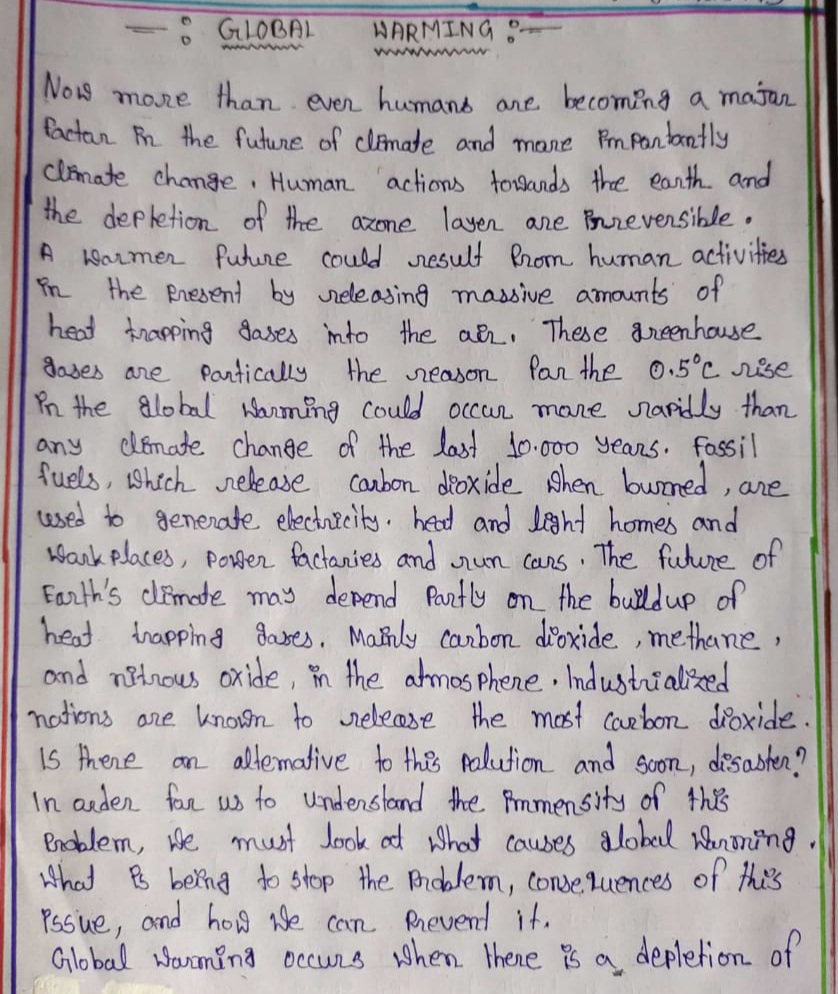 —: GLOBAL WARMING :—
Now more than ever humans are becoming a major
factor in the future of climate and more importantly
climate change. Human actions towards the earth and
the depletion of the ozone layer are irreversible.
A warmer future could result from human activities
in the present by releasing massive amounts of
heat trapping gases into the air. These greenhouse
gases are partically the reason for the 0.5°C rise
in the global warming could occur more rapidly than
any climate change of the last 10.000 years. fossil
fuels, which release carbon dioxide when burned, are
used to generate electricity. heat and light homes and
work places, power factories and run cars. The future of
Earth's climate may depend partly on the buildup of
heat trapping gases. Mainly carbon dioxide, methane,
and nitrous oxide, in the atmosphere. Industrialized
nations are known to release the most carbon dioxide.
Is there an alternative to this polution and soon, disaster?
In order for us to understand the immensity of this
problem, we must look at what causes global warming.
what is being to stop the problem, consequences of this
issue, and how we can prevent it.
Global warming occurs when there is a depletion of